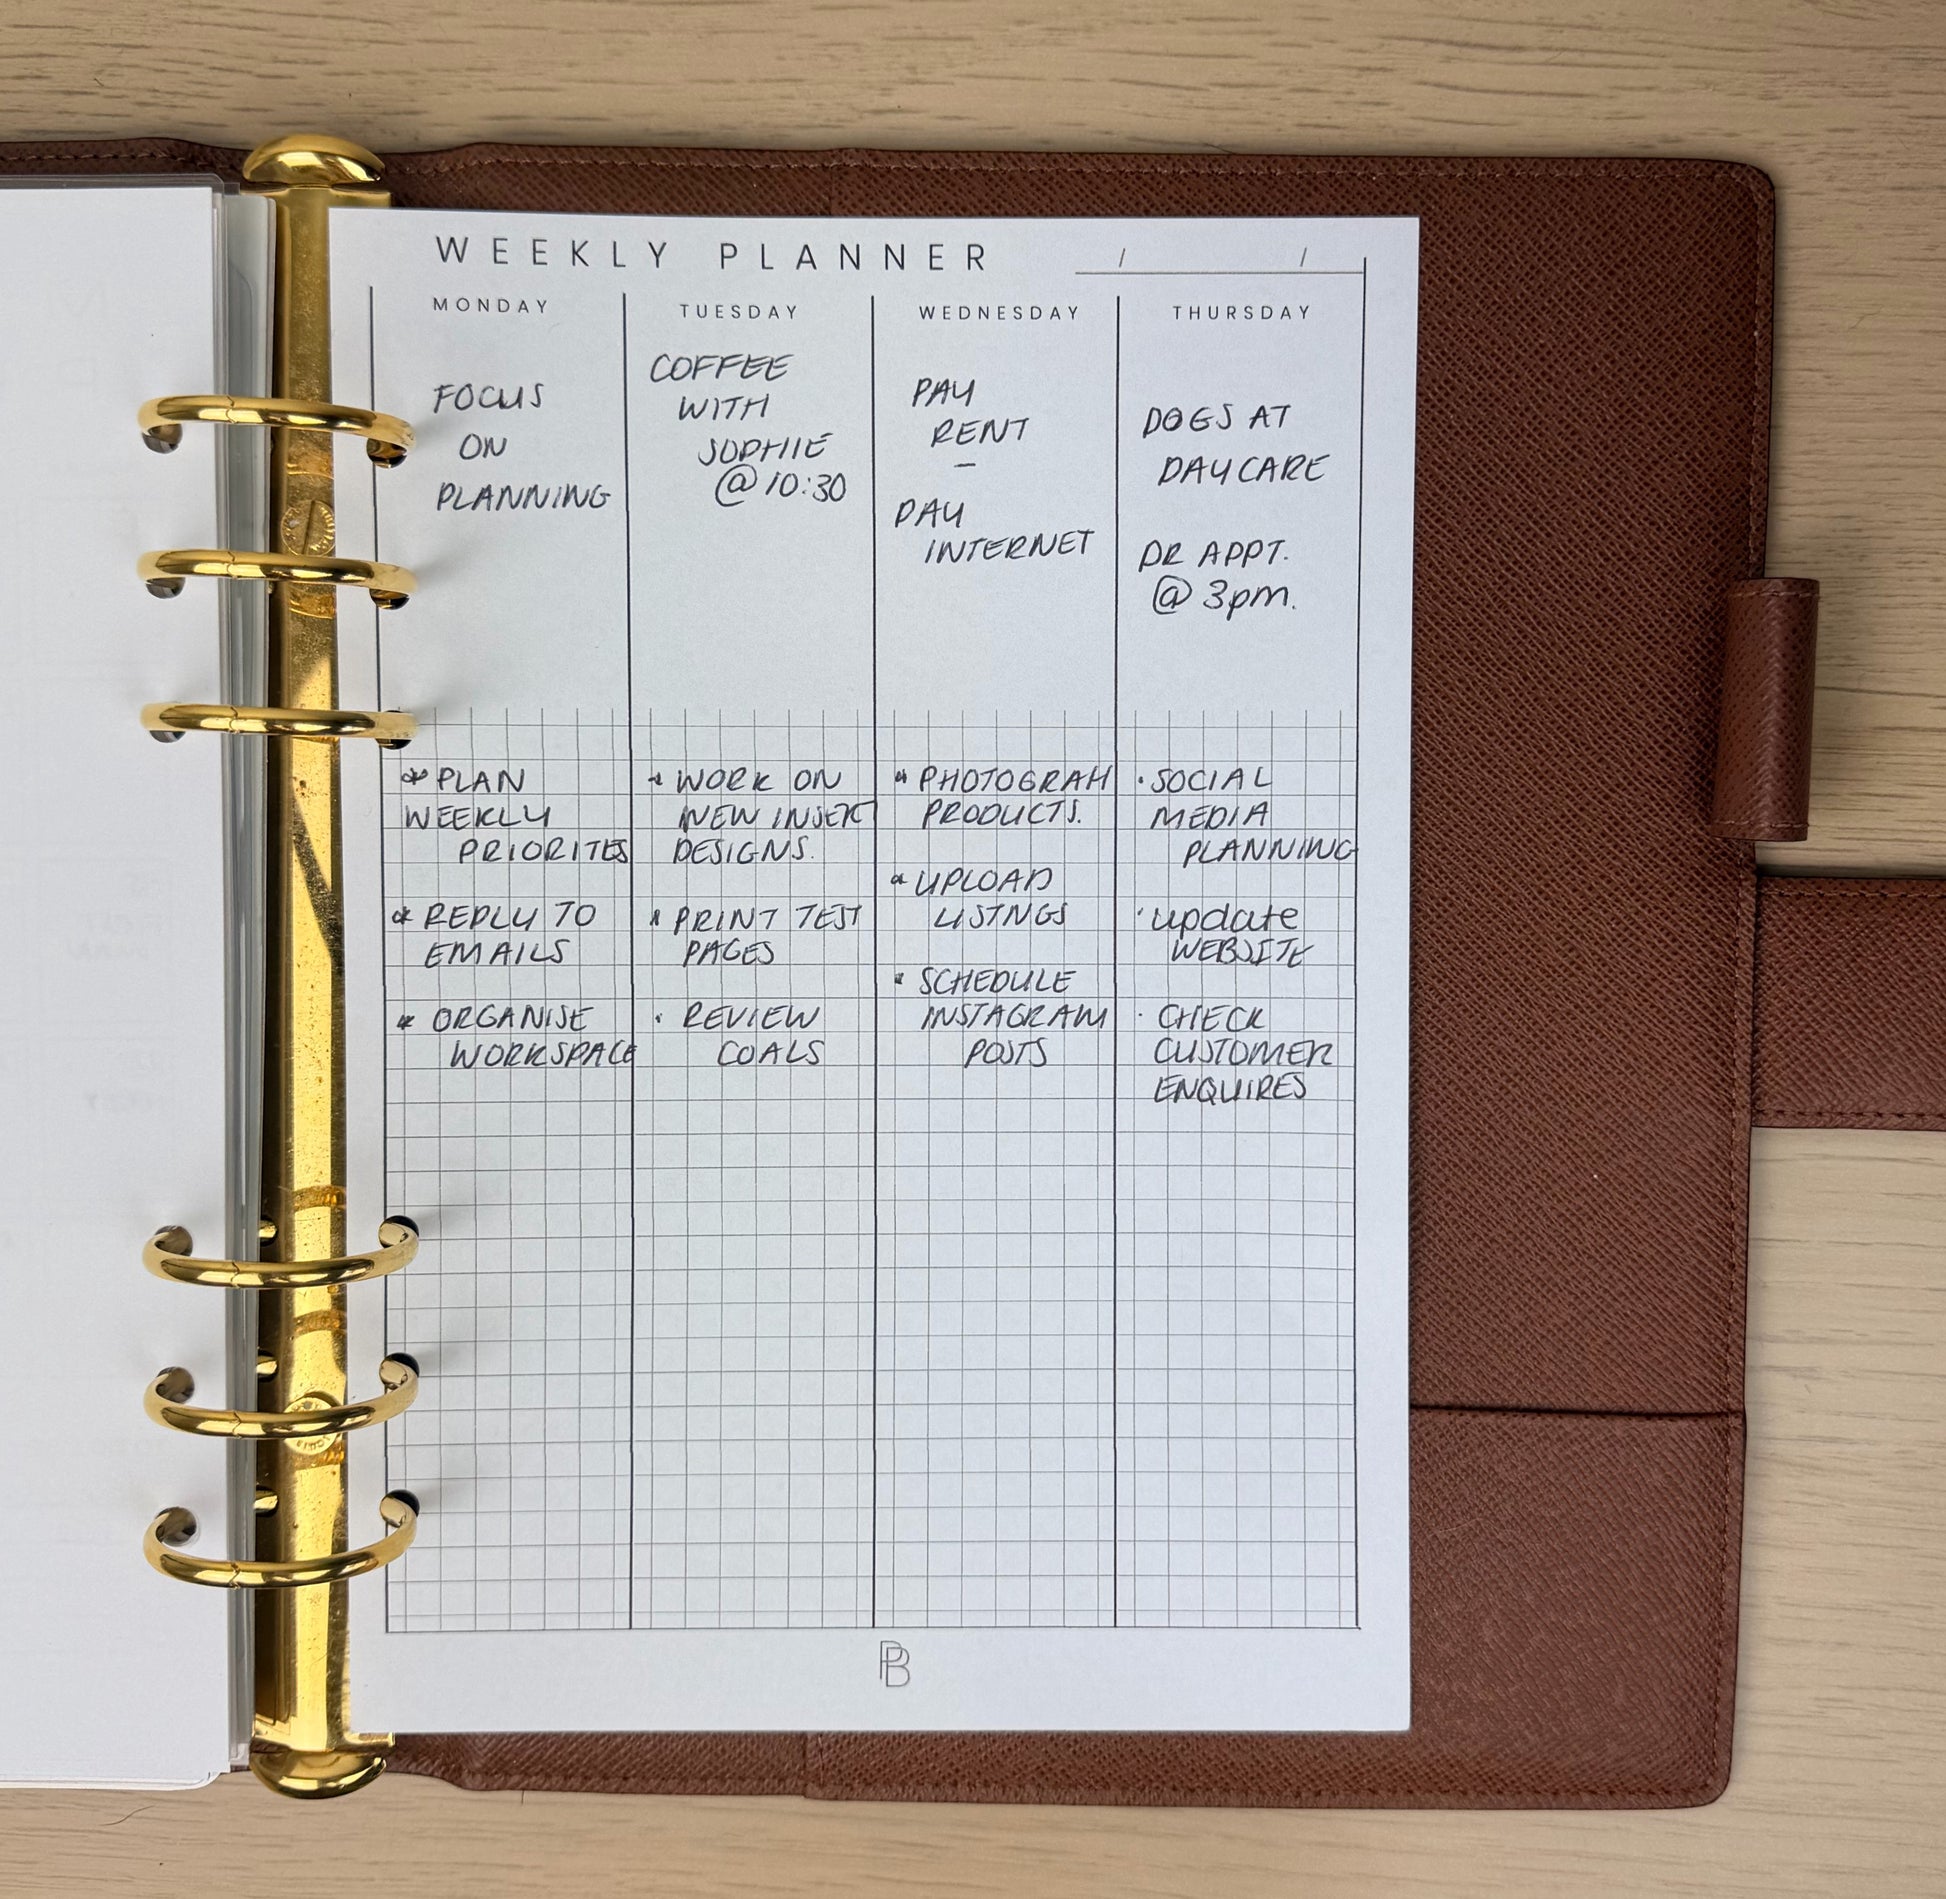 WEEKLY PLANNER
/ /
MONDAY
FOCUS
ON
PLANNING
* PLAN
WEEKLY
PRIORITES
* REPLY TO
EMAILS
* ORGANISE
WORKSPACE
TUESDAY
COFFEE
WITH
SOPHIE
@ 10:30
* WORK ON
NEW INSERT
DESIGNS.
* PRINT TEST
PAGES
• REVIEW
GOALS
WEDNESDAY
PAY
RENT
–
PAY
INTERNET
* PHOTOGRAH
PRODUCTS.
* UPLOAD
LISTNGS
• SCHEDULE
INSTAGRAM
POSTS
THURSDAY
DOGS AT
DAYCARE
DR APPT.
@ 3pm.
• SOCIAL
MEDIA
PLANNING
• update
WEBSITE
• CHECK
CUSTOMER
ENQUIRES
PB